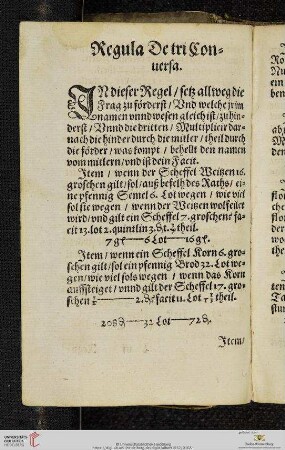 Regula De tri Con-
uersa.
IN dieser Regel / setz allweg die
Frag zu förderst / Vnd welche zum
namen vnnd wesen gleich ist / zu hin-
derst / Vnnd die dritten / Multiplicir dar-
nach die hinder durch die mitler / theil durch
die förder / was kompt / behelt den namen
vom mitlern / vnd ist dein Facit.
Item / wenn der Scheffel Weitzen 16.
groschen gilt / sol / auß befelh des Raths / ei-
ne pfennig Semel 6. Lot wegen / wie viel
sol sie wegen / wenn der Weitzen wolfeiler
wird / vnd gilt ein Scheffel 7. groschen? fa-
cit 13. lot 2. quintlin 3. theil.
7 6 Lot 16
Item / wenn ein Scheffel Korn 6. gro-
schen gilt / sol ein pfennig Brod 32. Lot we-
gen / wie viel sols wegen / wenn das Korn
auffsteiget / vnnd gilt der Scheffel 17. gro-
schen 2. facit 11. Lot theil.
208 32 Lot 72
Item /